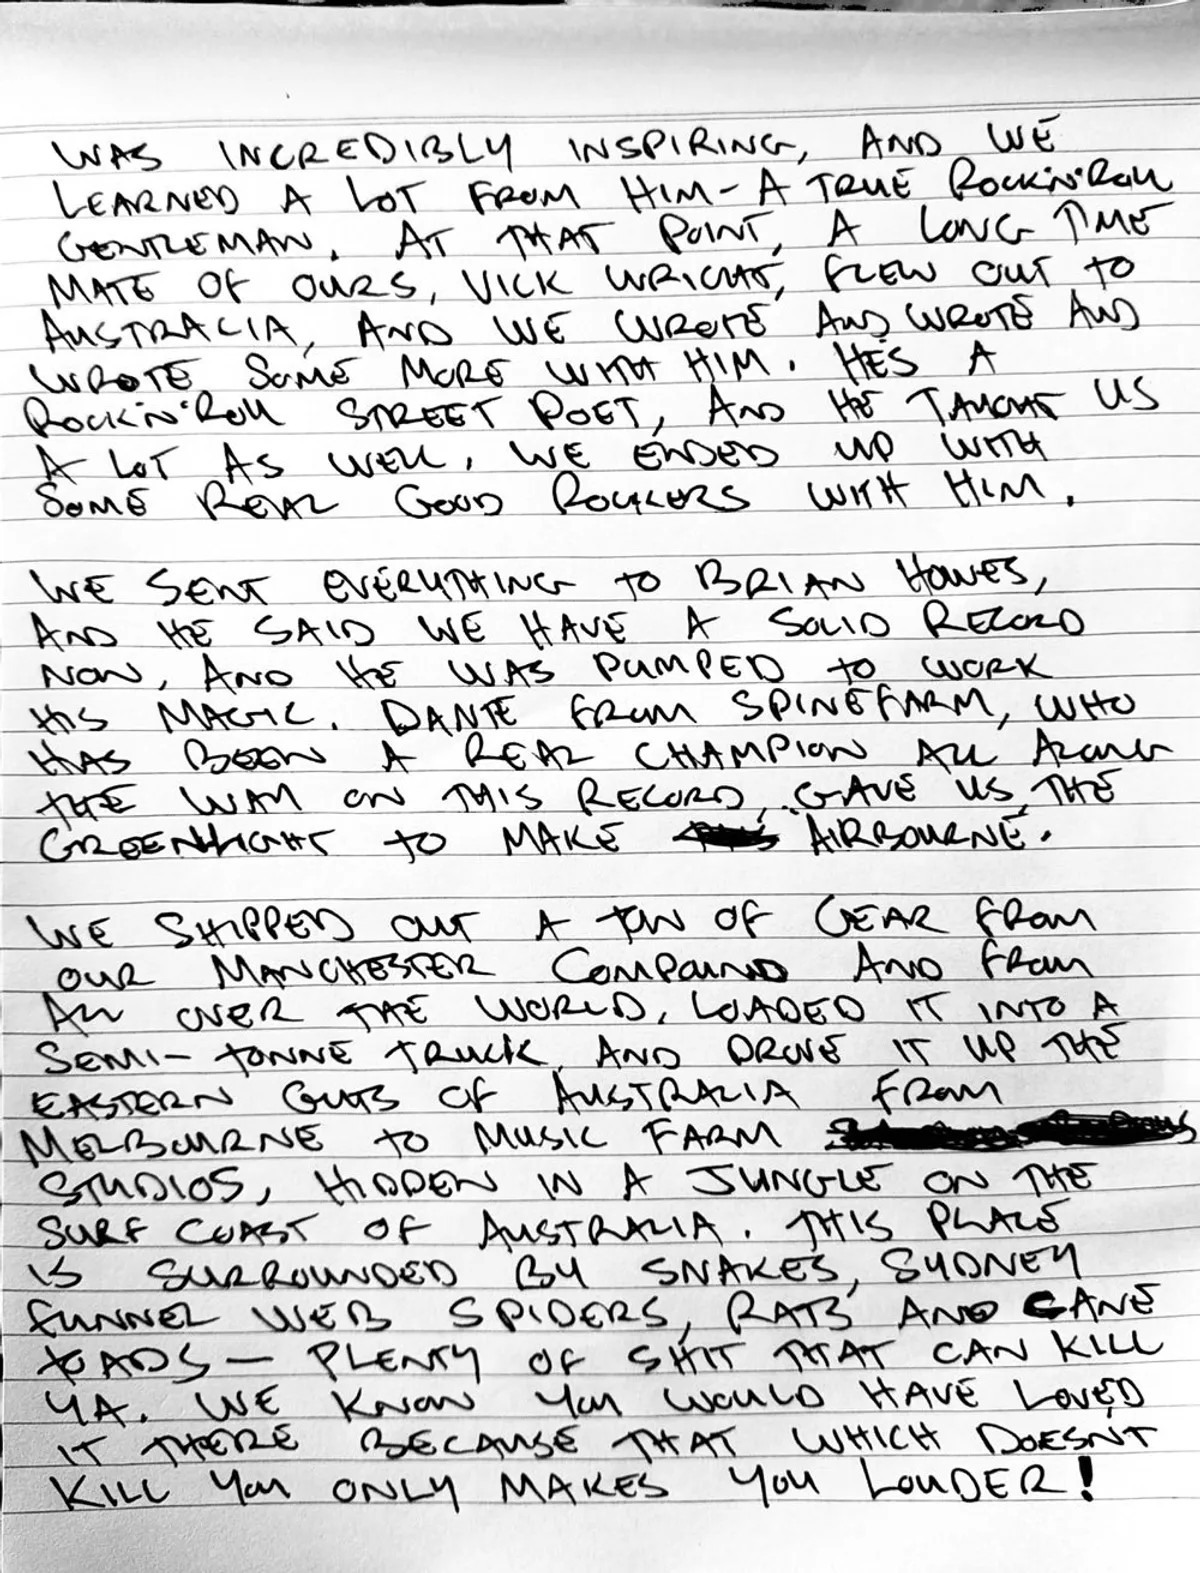 WAS INCREDIBLY INSPIRING, AND WE
LEARNED A LOT FROM HIM - A TRUE ROCK'N'ROLL
GENTLEMAN. AT THAT POINT, A LONG TIME
MATE OF OURS, VICK WRIGHT, FLEW OUT TO
AUSTRALIA, AND WE WROTE AND WROTE AND
WROTE SOME MORE WITH HIM. HE'S A
ROCK'N'ROLL STREET POET, AND HE TAUGHT US
A LOT AS WELL. WE ENDED UP WITH
SOME REAL GOOD ROCKERS WITH HIM.
WE SENT EVERYTHING TO BRIAN HOWES,
AND HE SAID WE HAVE A SOLID RECORD
NOW, AND HE WAS PUMPED TO WORK
HIS MAGIC. DANTE FROM SPINEFARM, WHO
HAS BEEN A REAL CHAMPION ALL ALONG
THE WAY ON THIS RECORD, GAVE US THE
GREENLIGHT TO MAKE AIRBOURNE.
WE SHIPPED OUT A TON OF GEAR FROM
OUR MANCHESTER COMPOUND AND FROM
ALL OVER THE WORLD, LOADED IT INTO A
SEMI-TONNE TRUCK AND DROVE IT UP THE
EASTERN GUTS OF AUSTRALIA FROM
MELBOURNE TO MUSIC FARM
STUDIOS, HIDDEN IN A JUNGLE ON THE
SURF COAST OF AUSTRALIA. THIS PLACE
IS SURROUNDED BY SNAKES, SYDNEY
FUNNEL WEB SPIDERS, RATS AND CANE
TOADS - PLENTY OF SHIT THAT CAN KILL
YA. WE KNOW YOU WOULD HAVE LOVED
IT THERE BECAUSE THAT WHICH DOESN'T
KILL YOU ONLY MAKES YOU LOUDER!